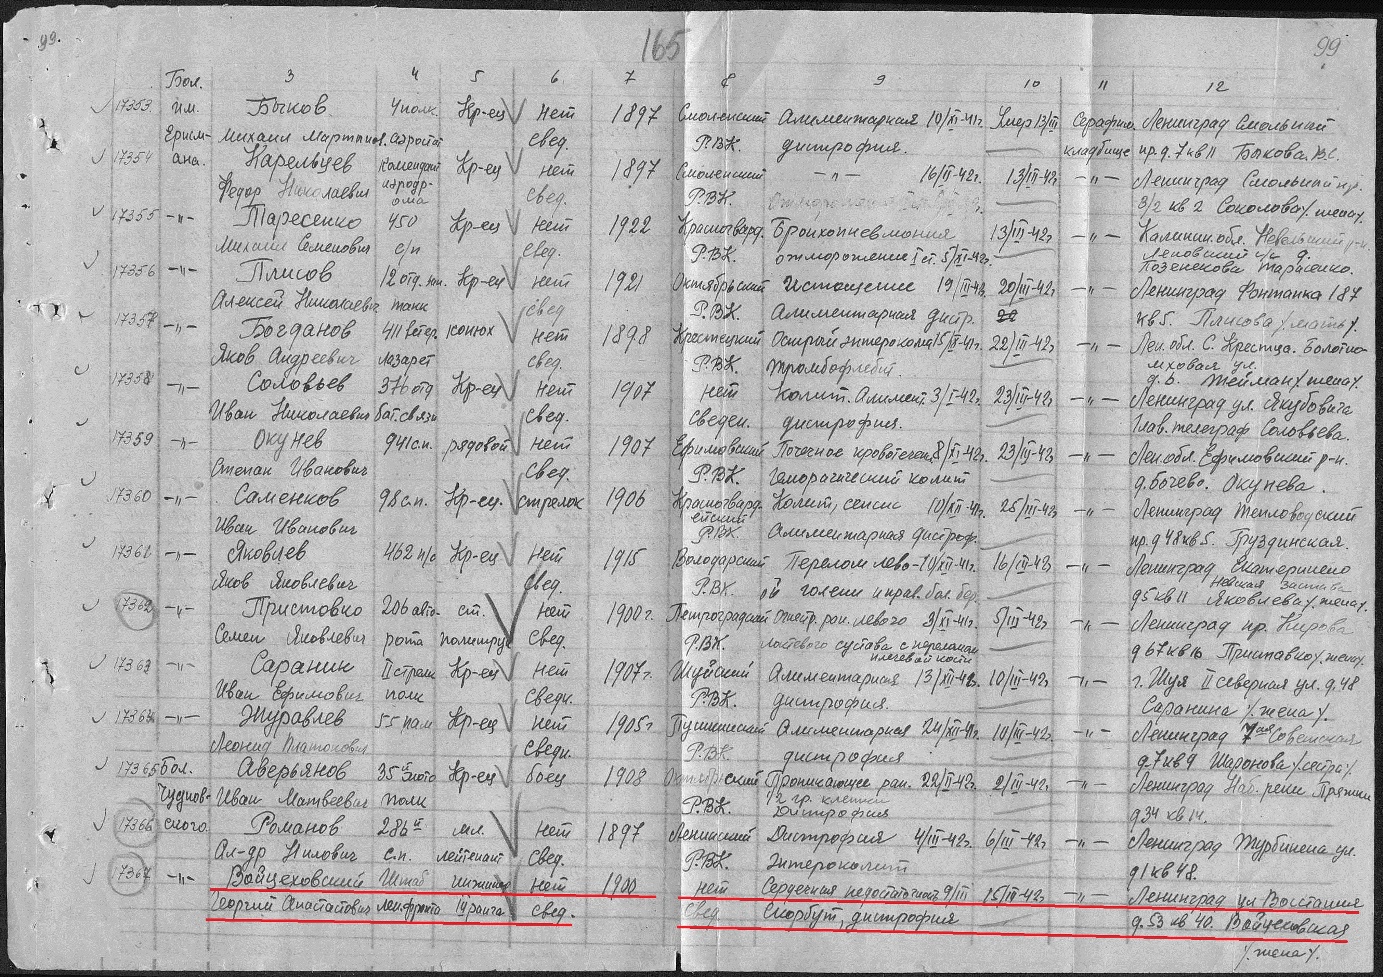 99. 165 99
Бол. 3 4 5 6 7 8 9 10 11 12
17353 им. Быков 4 полк. Кр-ец нет 1897 Смоленский Алиментарная 10/XI-41г. Умер 13/III Серафим. Ленинград Смольный
Ерисм- Михаил Мартынов. аэростат свед. Р.В.К. дистрофия. кладбище пр. д. 7 кв 11 Быкова. В.С.
17354 ана. Карельцев Комендант Кр-ец нет 1897 Смоленский -"- 16/III-42г. 13/III-42г -"- Ленинград Смольный пр.
Федор Николаевич аэродр-ома свед. Р.В.К. 3/2 кв 2 Соколова /жена/.
17355 -"- Тарасенко 450 Кр-ец нет 1922 Красногвард. Бронхопневмония 13/III-42г -"- Калинин. обл. Невельский р-н.
Михаил Семенович с/п свед. Р.В.К. отморожение I ст. 5/XI-42г. Леповский с/с д.
Позенекова Тарасенко.
17356 -"- Плисов 12 отд. Кр-ец нет 1921 Октябрьский Истощение 19/III-42. 20/III-42г -"- Ленинград Фонтанка 187
Алексей Николаевич танк свед Р.В.К. Алиментарная дистр. кв 5. Плисова /мать/.
17357 -"- Богданов 411 ветер. конюх нет 1898 Крестецкий Острый энтероколит 15/XI-41г. 22/III-42г -"- Лен. обл. С. Крестца. Болотно-
Яков Андреевич лазарет свед. Р.В.К. тромбофлебит. мховая ул.
17358 -"- Соловьев 376 отд Кр-ец нет 1907 нет Колит. Алимент. 3/I-42г. 23/III-42г -"- Ленинград ул. Якубовича
д. 6. Жейман /жена/.
Иван Николаевич бат. связи свед. сведен. дистрофия. Глав. телеграф Соловьева.
17359 -"- Окунев 941 с.п. рядовой нет 1907 Ефимовский Почечное кровотечен. 8/XI-42г. 23/III-42г -"- Лен. обл. Ефимовский р-н.
Степан Иванович свед. Р.В.К. Геморагический колит д. Бочево. Окунева.
17360 -"- Саменков 98 с.п. Кр-ец. стрелок 1906 Красногвард. Колит, сепсис 10/XII-41г. 25/III-42г -"- Ленинград Тепловодский
Иван Иванович ейский Р.В.К. Алиментарная дистроф. пр. д 48 кв 5. Груздинская.
17361 -"- Яковлев 462 п/о Кр-ец нет 1915 Володарский Перелом лево- 10/XII-41г. 16/III-42г -"- Ленинград Екатеринено
Яков Яковлевич свед. Р.В.К. й голени и прав. бол. бер. Невская застава
д 5 кв 11 Яковлева /жена/.
17362 -"- Приставко 206 авто- ст. нет 1900 г. Петроградский Огнстр. ран. левого 3/XI-41г. 5/III-42г -"- Ленинград пр. Кирова
Семен Яковлевич рота политрук свед. Р.В.К. локтевого сустава с переломом плечевой кости д 67 кв 16 Приставко /жена/.
17363 -"- Саранин II стрелк Кр-ец нет 1907г. Шуйский Алиментарная 13/XII-42г. 10/III-42г -"- г. Шуя II северная ул. д. 48
Иван Ефимович полк сведн. Р.В.К. дистрофия. Саранина /жена/.
17364 -"- Журавлев 55 пам Кр-ец нет 1905г Пушкинский Алиментарная 24/XII-42г. 10/III-42г -"- Ленинград 7ая Советская
Леонид Платонович сведн. Р.В.К. дистрофия д 7 кв 9 Шаронова /сестра/.
17365 Бол. Аверьянов 35й Кр-ец боец 1903 Октябрьский Проникающее ран. 22/III-42г. 2/III-42г -"- Ленинград Наб. реки Пряжки
Чуднов- Иван Матвеевич полк Р.В.К. гр. клетки Дистрофия д 34 кв 14.
17366 ского. Романов 286й мл. нет 1897 Ленинский Дистрофия 4/III-42г. 6/III-42г -"- Ленинград Турбинена ул.
Ал-др Нилович с.п. лейтенант свед. Р.В.К. энтероколит д 1 кв 48.
17367 -"- Войцеховский Штаб инженер нет 1900 нет Сердечная недостаточност. 9/III 15/III-42г -"- Ленинград ул Восстания
Георгий Анастасович Лен. фронта III ранга свед. свед. Скорбут, дистрофия д. 53 кв 40. Войцеховская
/жена/.